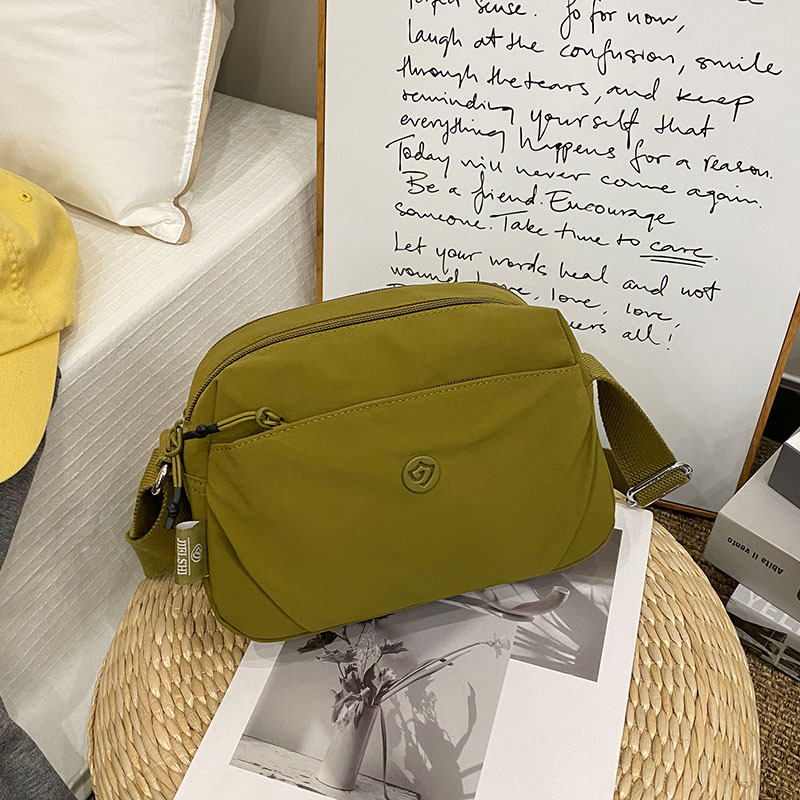 perfect sense. So for now,
laugh at the confusion, smile
through the tears, and keep
reminding yourself that
everything happens for a reason.
Today will never come again.
Be a friend. Encourage
someone. Take time to care.
Let your words heal and not
wound. love, love, love,
all!
Abita il vento